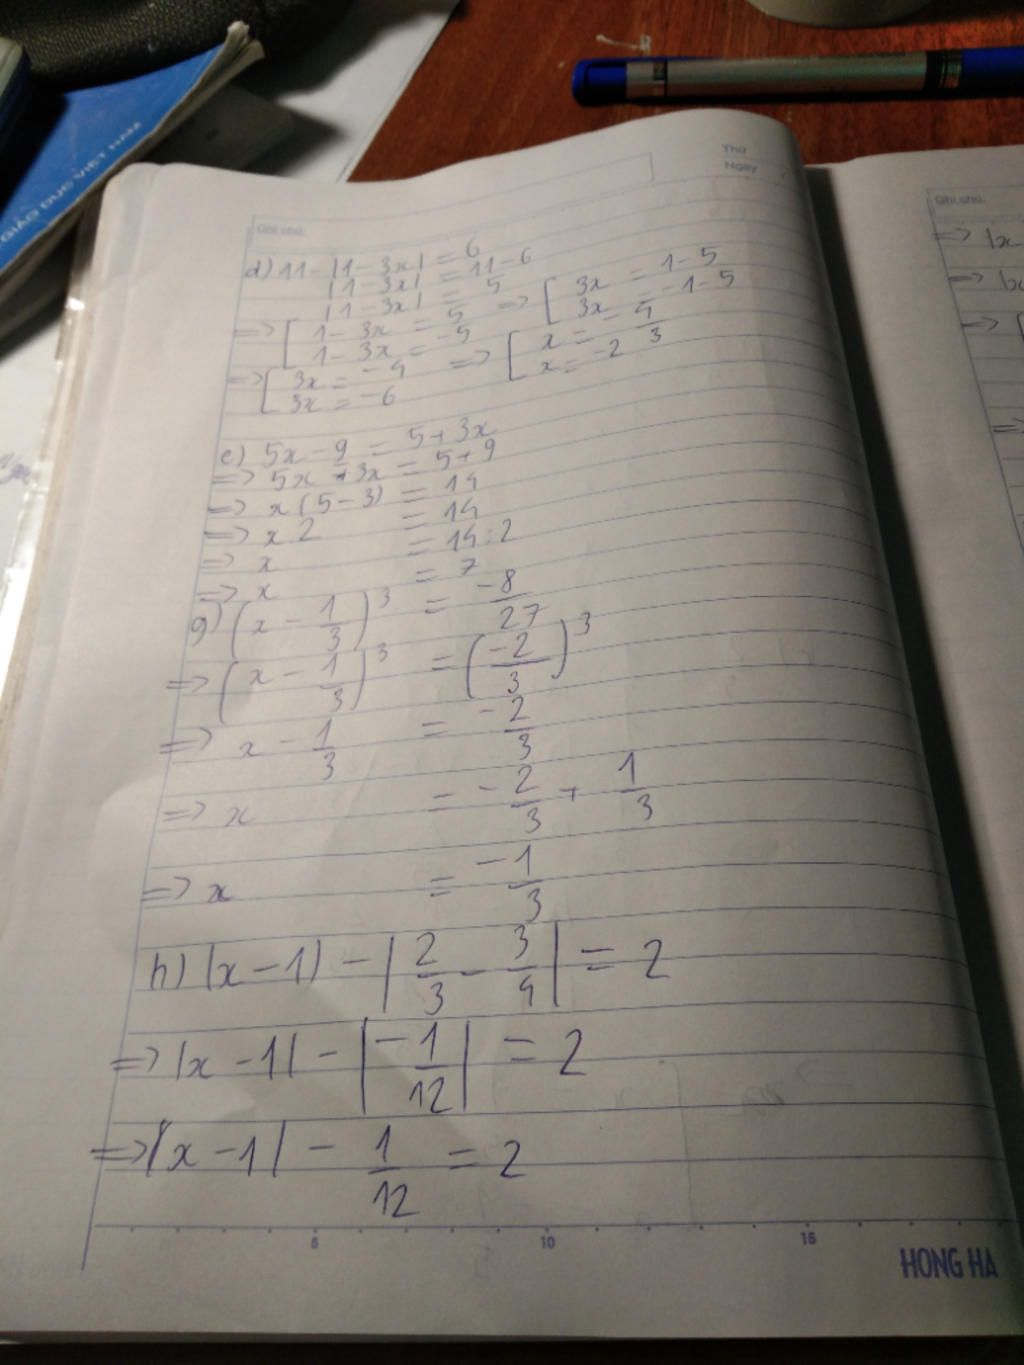 GIÁO DỤC VIỆT NAM
Thứ
Ngày
Ghi chú:
d) 11 - |1 - 3x| = 6
|1 - 3x| = 11 - 6
|1 - 3x| = 5
=> [ 1 - 3x = 5 => [ 3x = 1 - 5
1 - 3x = -5 3x = -1 - 5
=> [ 3x = -4 => [ x = -4/3
3x = -6 x = -2
e) 5x - 9 = 5 + 3x
=> 5x - 3x = 5 + 9
=> x (5 - 3) = 14
=> x . 2 = 14
=> x = 14 : 2
=> x = 7
g) (x - 1/3)^3 = -8/27
=> (x - 1/3)^3 = (-2/3)^3
=> x - 1/3 = -2/3
=> x = -2/3 + 1/3
=> x = -1/3
h) |x - 1| - |2/3 - 3/4| = 2
=> |x - 1| - |-1/12| = 2
=> |x - 1| - 1/12 = 2
5 10 15
HONG HA
Ghi chú:
=> |x
=>
=> [
=>